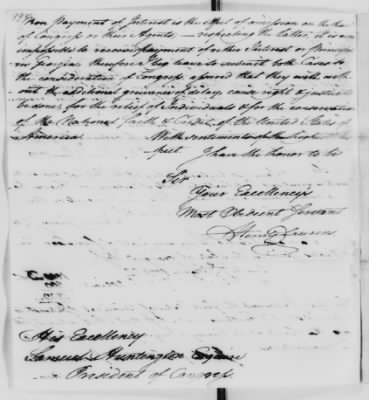 from Payment of Interest is the effect of omission on the part
of Congress or their Agents — respecting the latter, it is an
impossible to receive payment of either Interest or Principal
in Georgia, therefore I beg leave to submit both Cases to
the consideration of Congress assured that they will with
out the additional grievance of delay, cause right & justice
to be done, for the relief of Individuals & for the conservation
of the National faith & Credit of the United States of
America
With sentiments of the highest Res
pect I have the honor to be
Sir
Your Excellency's
Most Obedient Servant
Henry Laurens
His Excellency
Samuel Huntington Esquire
President of Congress